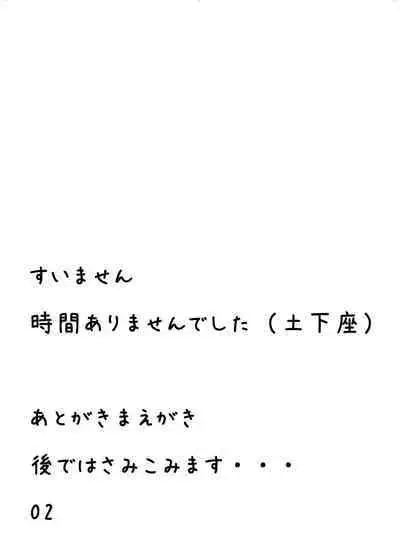 すいません
時間ありませんでした（土下座）
あとがきまえがき
後ではさみこみます・・・
02